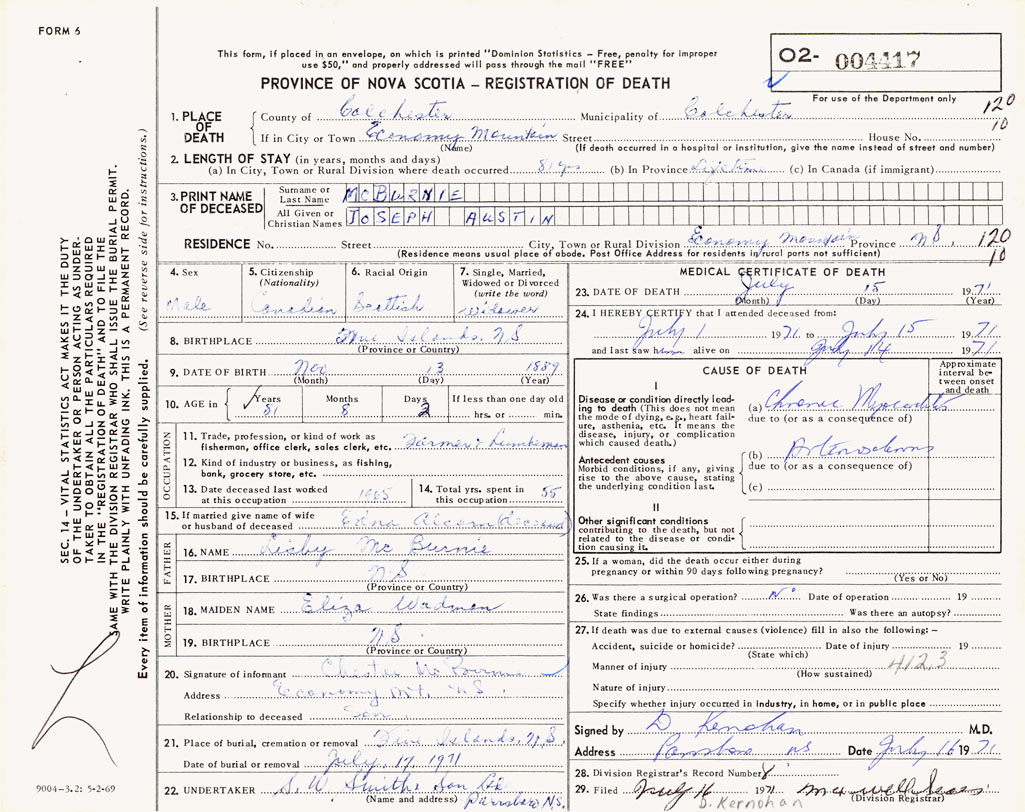 FORM 6
This form, if placed in an envelope, on which is printed "Dominion Statistics – Free, penalty for improper
use $50," and properly addressed will pass through the mail "FREE"
PROVINCE OF NOVA SCOTIA – REGISTRATION OF DEATH
O2- 004417
For use of the Department only
120
10
1. PLACE OF DEATH
County of Colchester Municipality of Colchester
If in City or Town Economy Mountain Street House No.
(Name) (If death occurred in a hospital or institution, give the name instead of street and number)
2. LENGTH OF STAY (in years, months and days)
(a) In City, Town or Rural Division where death occurred 81 yrs (b) In Province Lifetime (c) In Canada (if immigrant)
3. PRINT NAME OF DECEASED
Surname or Last Name MCBURNIE
All Given or Christian Names JOSEPH AUSTIN
RESIDENCE No. Street City, Town or Rural Division Economy Mountain Province N.S. 120
10
(Residence means usual place of abode. Post Office Address for residents in rural parts not sufficient)
4. Sex
Male
5. Citizenship
(Nationality)
Canadian
6. Racial Origin
Scottish
7. Single, Married,
Widowed or Divorced
(write the word)
Widower
8. BIRTHPLACE Five Islands, N.S
(Province or Country)
9. DATE OF BIRTH Nov 13 1889
(Month) (Day) (Year)
10. AGE in Years Months Days If less than one day old
81 8 2 hrs. or min.
OCCUPATION
11. Trade, profession, or kind of work as
fisherman, office clerk, sales clerk, etc. Farmer & Lumberman
12. Kind of industry or business, as fishing,
bank, grocery store, etc.
13. Date deceased last worked
at this occupation 1965
14. Total yrs. spent in
this occupation 55
15. If married give name of wife
or husband of deceased Edna Alcorn (deceased)
FATHER
16. NAME Lisby Mc Burnie
17. BIRTHPLACE N.S
(Province or Country)
MOTHER
18. MAIDEN NAME Eliza Wadman
19. BIRTHPLACE N.S
(Province or Country)
20. Signature of informant Chester McBurnie
Address Economy Mt. N.S.
Relationship to deceased Son
21. Place of burial, cremation or removal Five Islands, N.S.
Date of burial or removal July 17 1971
22. UNDERTAKER S. W Smith & Son Ltd
(Name and address) Parrsboro N.S.
MEDICAL CERTIFICATE OF DEATH
23. DATE OF DEATH July 15 1971
(Month) (Day) (Year)
24. I HEREBY CERTIFY that I attended deceased from:
July 1 1971 to July 15 1971
and last saw him alive on July 14 1971
CAUSE OF DEATH
Approximate
interval be-
tween onset
and death
I
Disease or condition directly lead-
ing to death (This does not mean
the mode of dying, e.g., heart fail-
ure, asthenia, etc. It means the
disease, injury, or complication
which caused death.)
(a) Chronic Myocarditis
due to (or as a consequence of)
Antecedent causes
Morbid conditions, if any, giving
rise to the above cause, stating
the underlying condition last.
(b)
due to (or as a consequence of)
(c)
II
Other significant conditions
contributing to the death, but not
related to the disease or condi-
tion causing it.
25. If a woman, did the death occur either during
pregnancy or within 90 days following pregnancy?
(Yes or No)
26. Was there a surgical operation? No Date of operation 19
State findings Was there an autopsy?
27. If death was due to external causes (violence) fill in also the following: –
Accident, suicide or homicide? Date of injury 19
(State which)
Manner of injury 412.3
(How sustained)
Nature of injury
Specify whether injury occurred in industry, in home, or in public place
Signed by D Kernohan M.D.
Address Parrsboro NS Date July 16 1971
28. Division Registrar's Record Number 8
29. Filed July 16 1971
(Division Registrar)
D. Kernohan
SEC. 14 – VITAL STATISTICS ACT MAKES IT THE DUTY
OF THE UNDERTAKER OR PERSON ACTING AS UNDER-
TAKER TO OBTAIN ALL THE PARTICULARS REQUIRED
IN THE "REGISTRATION OF DEATH" AND TO FILE THE
SAME WITH THE DIVISION REGISTRAR WHO SHALL ISSUE THE BURIAL PERMIT.
WRITE PLAINLY WITH UNFADING INK. THIS IS A PERMANENT RECORD.
Every item of information should be carefully supplied. (See reverse side for instructions.)
9004-3.2: 5-2-69